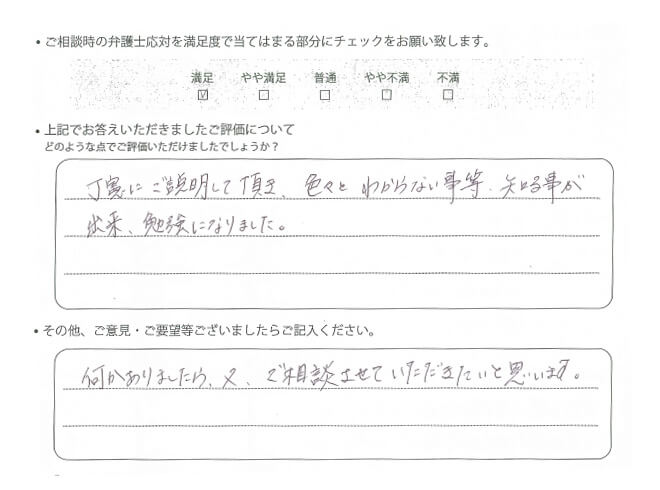 ・ご相談時の弁護士応対を満足度で当てはまる部分にチェックをお願い致します。
満足 やや満足 普通 やや不満 不満
☑ □ □ □ □
・上記でお答えいただきましたご評価について
どのような点でご評価いただけましたでしょうか？
丁寧にご説明して頂き、色々と わからない事等、知る事が
出来、勉強になりました。
・その他、ご意見・ご要望等ございましたらご記入ください。
何かありましたら、又、ご相談させていただきたいと思います。